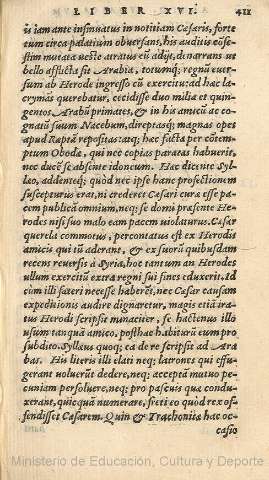 LIBER XVI. 411
is iam ante insinuatus in notitiam Cæsaris, forte
tum circa palatium obuersans, his auditis cōfe-
stim mutata ueste atratus eū adijt, denarrans ut
bello afflicta sit Arabia, totumq; regnū euer-
sum ab Herode ingresso cū exercitu: ad hæc la-
crymās querebatur, cecidisse duo milia et quin-
gentos Arabū primates, & in his amicū ac co-
gnatū suum Nacebum, direptasq; magnas opes
apud Raptā repositas: atq; hæc facta per cōtem-
ptum Obodæ, qui nec copias paratas habuerit,
nec ducē se absente idoneum. Hæc dicente Syl-
leo, addenteq; quòd nec ipse hanc profectionem
suscepturus erat, ni crederet Cæsari curæ esse pa-
cem publicā omnium, neq; se domi præsente He-
rodes nisi suo malo eam pacem uiolaturus. Cæsar
querela commouus, percontatus est ex Herodis
amicis qui tū aderant, & ex suorū quibusdam
recens reuersis à Syria, hoc tantum an Herodes
ullum exercitū extra regni sui fines eduxerit. Id
cùm illi fateri necesse haberēt, nec Cæsar causam
expeditionis audire dignaretur, magis etiā ira-
tus Herodi scripsit minaciter, se hactenus illo
usum tanquā amico, posthac habiturū eum pro
subdito. Syllæus quoq; ea de re scripsit ad Ara-
bas. His literis illi elati neq; latrones qui effu-
gerant uoluerūt dedere, neq; accepta mutuo pe-
cuniam persoluere, neq; pro pascuis qua condu-
xerant, quicquā numerare, freti eo quòd rex of-
fendisset Cæsarem. Quin & Trachonitæ hac oc-
casio
Ministerio de Educación, Cultura y Deporte